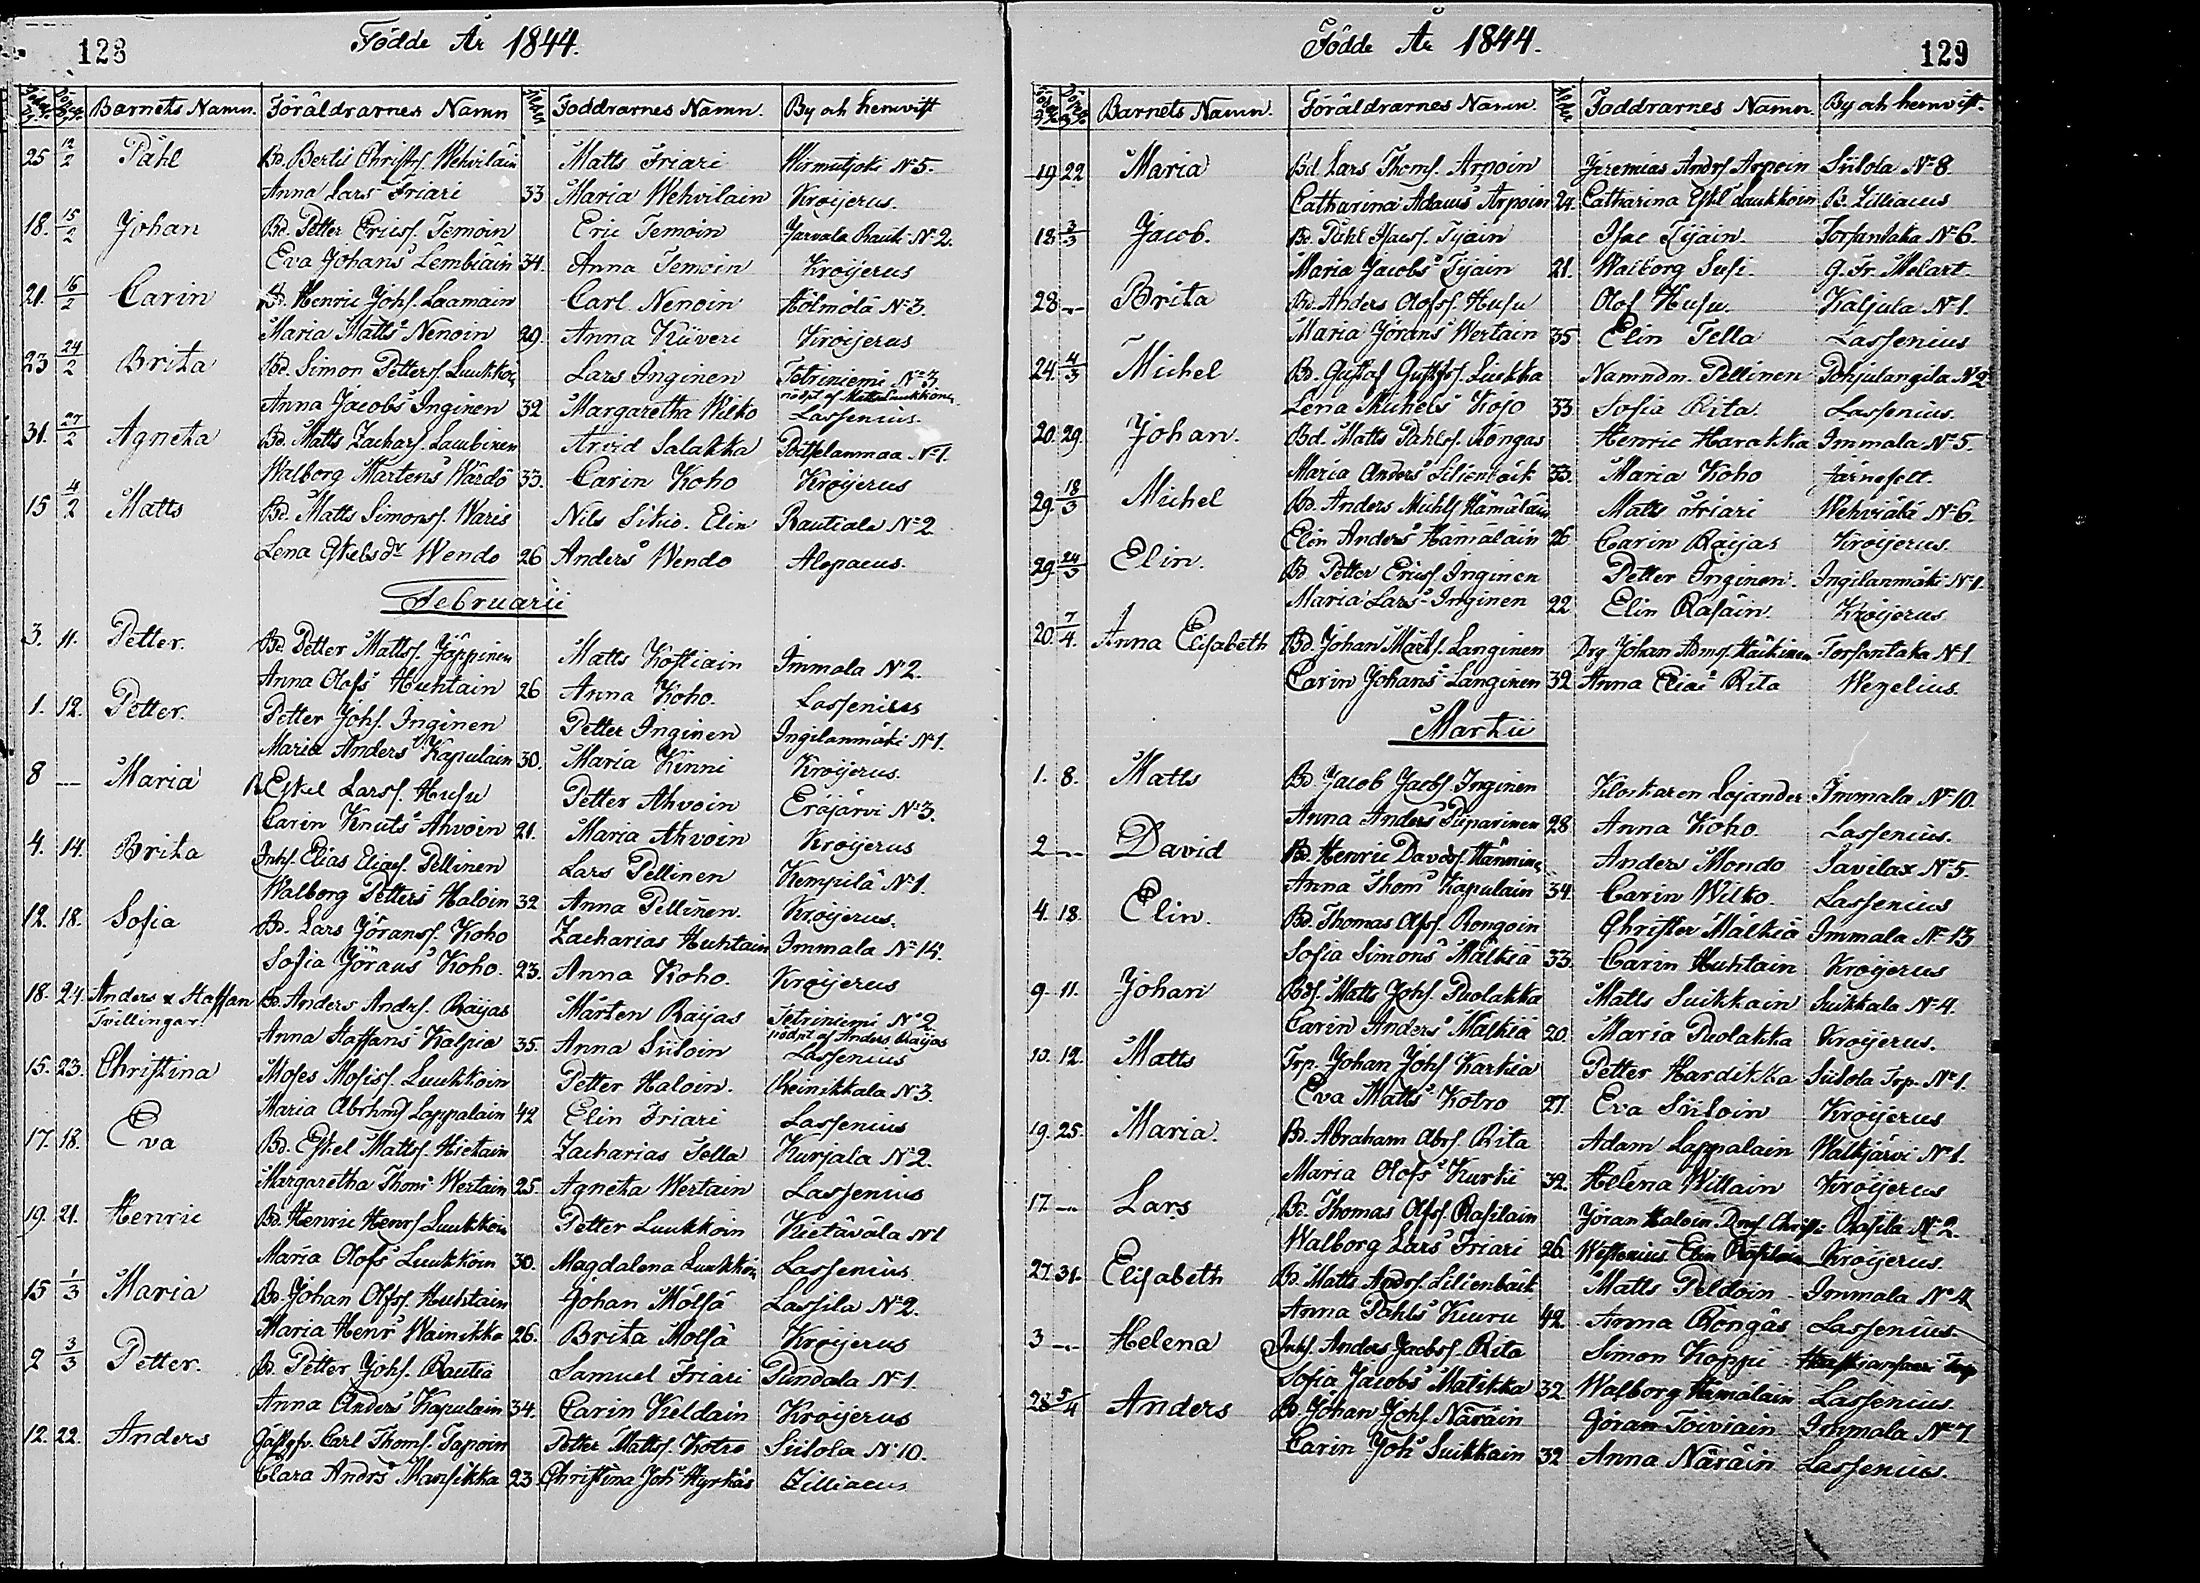 128
Födde År 1844.
Barnets Namn. Föräldrarnes Namn Foddrarnes Namn. By och hemvist
25 12/2 Påhl Bd. Bertil Christofs. Wehviläin Matts Friari Hirmutjoki No 5.
Anna Lars Friari 33 Maria Wehvilain Kroijerus.
18. 15/2 Johan Bd. Petter Ericss. Temoin Eric Temoin Jarvala Rauk No 2.
Eva Johans Lembiäin 34. Anna Temoin Kroijerus
21. 16/2 Carin Bd. Henric Johs. Laamain Carl Nenoin Hölmölä No 3.
Maria Matts Nenoin 29. Anna Kiiveri Kroijerus
23 24/2 Brita Bd. Simon Petterss. Luukkoin Lars Inginen Tetriniemi No 3
Anna Jacobs Inginen 32 Margaretha Wilko Lassenius
31. 27/2 Agneta Bd. Matts Zachars. Laubinen Arvid Salakka Poitselanmaa No 1.
Walborg Mårtens Wärdö 33. Carin Koho Kroijerus
15 4/2 Matts Bd. Matts Simonss. Waris Nils Sikiö. Elin Rautiala No 2
Lena Eskelsdr Wendo 26 Anders Wendo Alopaeus.
Februarii
3. 11. Petter. Bd. Petter Mattss. Jöppinen Matts Koskiain Immala No 2.
Anna Olofs Huhtain 26 Anna Koho. Lassenius
1. 12. Petter. Petter Johs. Inginen Petter Inginen Ingilanmäki No 1.
Maria Anders Kapulain 30. Maria Kinni Kroijerus.
8 — Maria B. Eskel Larss. Husu Petter Ahvoin Eräjärvi No 3.
Carin Knuts Ahvoin 21. Maria Ahvoin Kroijerus
4. 14. Brita Inhs. Elias Eliaes. Pellinen Lars Pellinen Kempilä No 1.
Walborg Petters Haloin 32 Anna Pellinen. Kroijerus.
12. 18. Sofia Bd. Lars Jöranss. Koho Zacharias Huhtain Immala No 14.
Sofia Jörans Koho. 23. Anna Koho. Kroijerus
18. 24. Anders & Staffan Bd. Anders Andrs. Raijas Mårten Raijas Tetriniemi No 2
Tvillingar. Anna Staffans Kalpio 35. Anna Siiloin nödpt af Anders Raijas Lassenius
15. 23. Christina Moses Mosiss. Luukkoin Petter Haloin. Reinikkala No 3.
Maria Abrhms Lappalain 42 Elin Friari Lassenius
17. 18. Eva Bd. Eskel Mattss. Hietain Zacharias Tella Kurjala No 2.
Margaretha Thoms Wertain 25. Agneta Wertain Lassenius
19. 21. Henric Bd. Henric Henrs. Luukkoin Petter Luukkoin Kietäväla No 1
Maria Olofs Luukkoin 30. Magdalena Luukkoin Lassenius
15 1/3 Maria Bd. Johan Olfss. Huhtain Johan Mölsä Lassila No 2.
Maria Henrs Wainikka 26. Brita Molsä Kroijerus
2 3/3 Petter. Bd. Petter Johs. Rautia Samuel Friari Pundala No 1.
Anna Anders Kapulain 34. Carin Keldain Kroijerus
12. 22. Anders Gästgfv. Carl Thoms. Tapoin Petter Mattss. Kotro Siilola No 10.
Clara Andrs Mansikka 23 Christina Joh Hyrkäs Zilliacus
129
Födde År 1844.
Barnets Namn. Föräldrarnes Namn. Foddrarnes Namn. By och hemvist.
19 22 Maria Bd Lars Thoms. Arpoin Jeremias Andrs Arpoin Siilola No 8.
Catharina Adams Arpoin 24. Catharina Eskl Luukkoin B. Zilliacus
18 3/3 Jacob. Bd. Påhl Isacs. Tijain Isac Tijain. Torsantaka No 6.
Maria Jacobs Tijain 21. Walborg Susi. G. Fr. Melart.
28 — Brita Bd. Anders Olofss. Husu Olof Husu. Kaljula No 1.
Maria Jörans Wertain 35 Elin Tella Lassenius
24. 4/3 Michel Bd. Gustaf Gustfss. Liukka Namndm. Pellinen Pohjulangila No 2
Lena Michels Kojo 33 Sofia Rita. Lassenius.
20. 29. Johan. Bd. Matts Påhlss. Röngas Henric Harakka Immala No 5.
Maria Anders Lilienbäck 33. Maria Koho Järnefelt.
29. 18/3 Michel Bd. Anders Michls Hämäläin Matts Friari Wehviäki No 6.
Elin Anders Hämäläin 26 Carin Raijas Kroijerus.
29. 24/3 Elin. Bd Petter Ericss. Inginen Petter Inginen. Ingilanmäki No 1.
Maria Lars Inginen 22 Elin Räsäin. Kroijerus
20. 7/4. Anna Elisabeth Bd. Johan Märts. Langinen Drg Johan Adms. Häikinen Torsantaka No 1
Carin Johans Langinen 32 Anna Elias Rita Wegelius.
Martii
1. 8. Matts Bd Jacob Jacobs. Inginen Klockaren Lojander Immala No 10.
Anna Anders Piiparinen 28 Anna Koho Lassenius.
2 — David Bd. Henric Davids. Hänninen Anders Mondo Savilax No 5.
Anna Thom Kapulain 34. Carin Wilko. Lassenius
4. 18. Elin. Bd. Thomas Olfss. Rongoin Christer Mälkiä Immala No 13
Sofia Simons Mälkiä 33. Carin Huhtain Kroijerus
9. 11. Johan Bds. Matts Johs. Puolakka Matts Suikkain Suikkala No 4.
Carin Anders Malkiä 20. Maria Puolakka Kroijerus.
10. 12. Matts Trp. Johan Johs Karhia Petter Hardikka Siilola Trp. No 1.
Eva Matts Kotro 27. Eva Siiloin Kroijerus
19. 25. Maria. Bd. Abraham Abrs. Rita Adam Lappalain Walkjärvi No 1.
Maria Olofs Kurki 32. Helena Willain Kroijerus
17 — Lars Bd. Thomas Olfss. Rasilain Jöran Haloin Rasila No 2.
Walborg Lars Friari 26 Elin Rasilain Kroijerus.
27. 31. Elisabeth Bd. Matts Andrs. Lilienbäck Matts Peldoin Immala No 4
Anna Påhls Kiuru 42. Anna Röngäs Lassenius
3 — Helena Inhs. Anders Jacobss. Rita Simon Koppi
Sofia Jacobs Matikka 32 Walborg Hämälain Lassenius.
28 5/4 Anders Bd. Johan Johs. Näräin Jöran Toiviain Immala No 7.
Carin Joh Suikkain 32 Anna Näräin Lassenius.